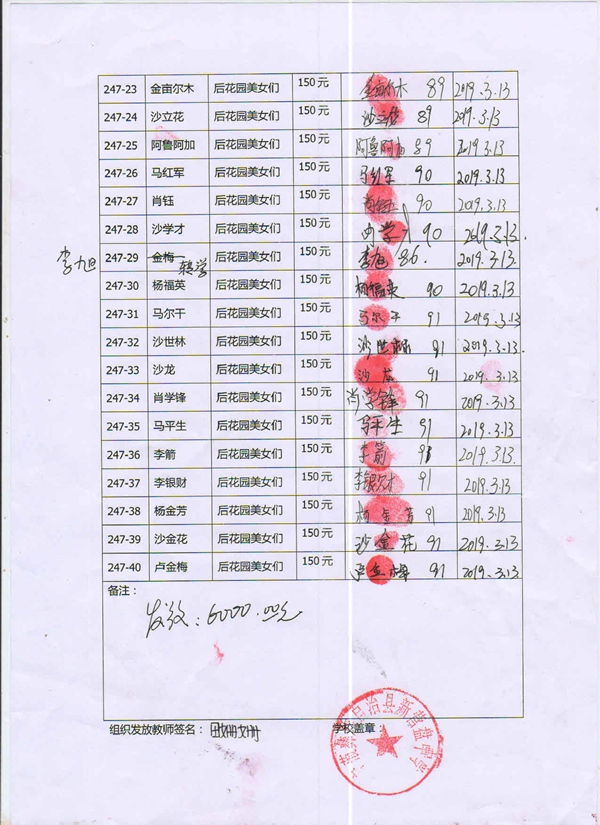 247-23 金亩尔木 后花园美女们 150元 金亩尔木 89 2019.3.13
247-24 沙立花 后花园美女们 150元 沙立花 89 2019.3.13
247-25 阿鲁阿加 后花园美女们 150元 阿鲁阿加 89 2019.3.13
247-26 马红军 后花园美女们 150元 马红军 90 2019.3.13
247-27 肖钰 后花园美女们 150元 肖钰 90 2019.3.13
247-28 沙学才 后花园美女们 150元 沙学才 90 2019.3.13
李旭 247-29 金梅 转学 后花园美女们 150元 李旭 86. 2019.3.13
247-30 杨福英 后花园美女们 150元 杨福英 90 2019.3.13
247-31 马尔干 后花园美女们 150元 马尔干 91 2019.3.13
247-32 沙世林 后花园美女们 150元 沙世林 91 2019.3.13
247-33 沙龙 后花园美女们 150元 沙龙 91 2019.3.13
247-34 肖学锋 后花园美女们 150元 肖学锋 91 2019.3.13
247-35 马平生 后花园美女们 150元 马平生 91 2019.3.13
247-36 李箭 后花园美女们 150元 李箭 91 2019.3.13
247-37 李银财 后花园美女们 150元 李银财 91 2019.3.13
247-38 杨金芳 后花园美女们 150元 杨金芳 91 2019.3.13
247-39 沙金花 后花园美女们 150元 沙金花 91 2019.3.13
247-40 卢金梅 后花园美女们 150元 卢金梅 91 2019.3.13
备注：
发放：6000.00元
组织发放教师签名： 学校盖章：
治县新营盘中学